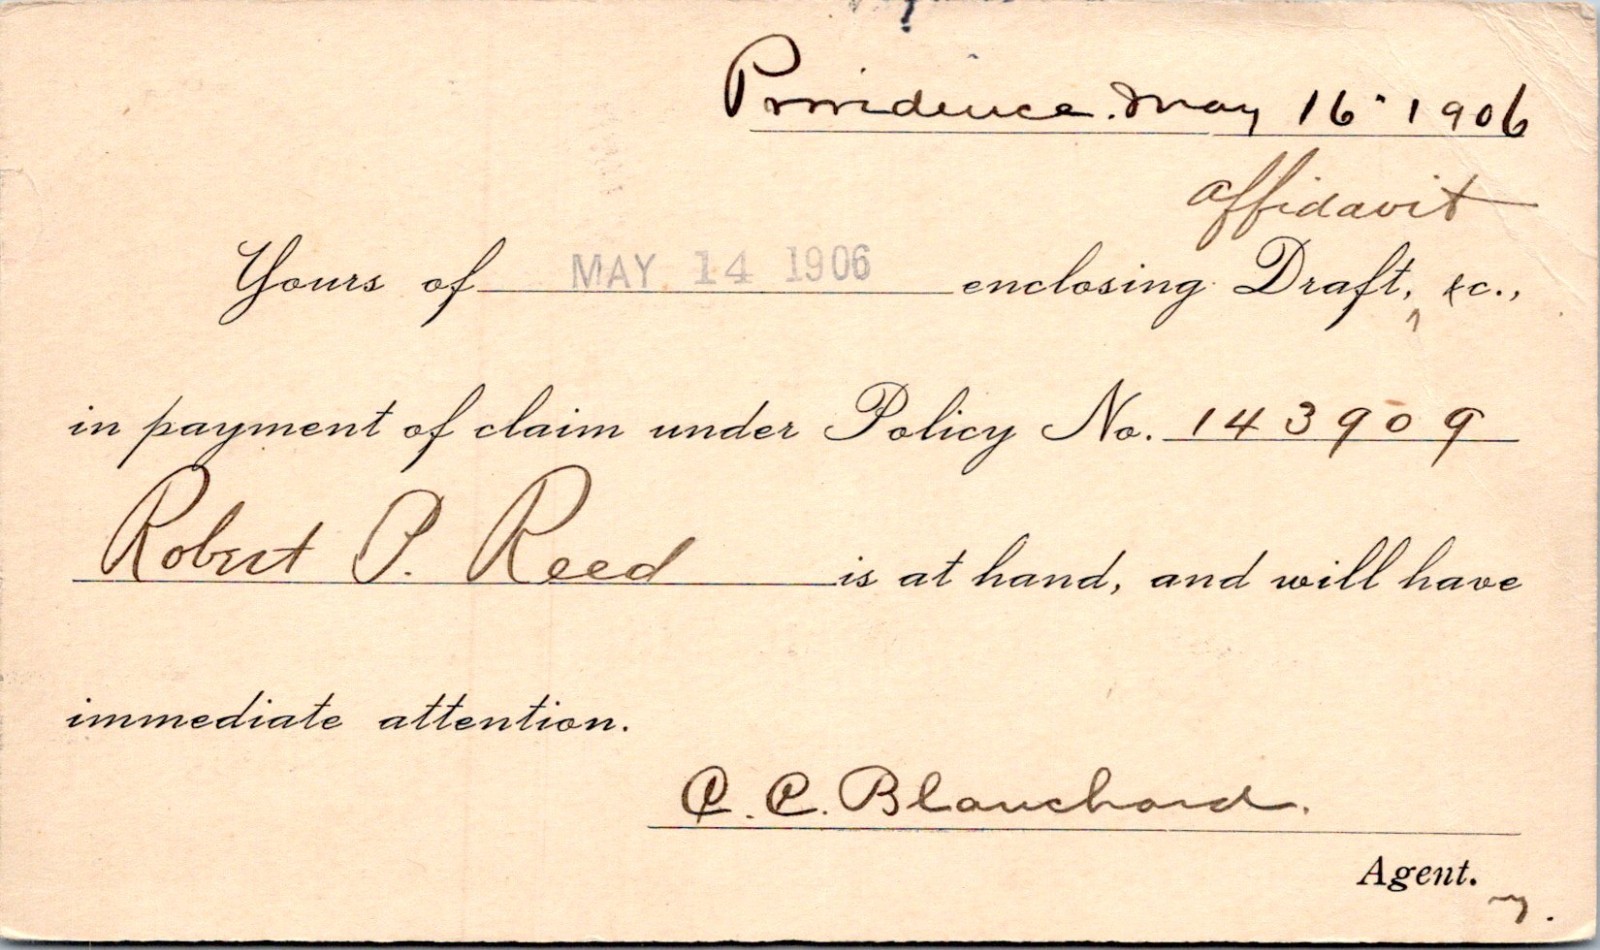 Providence. May 16" 1906
affidavit
Yours of MAY 14 1906 enclosing Draft, &c.,
in payment of claim under Policy No. 143909
Robert P. Reed is at hand, and will have
immediate attention.
C. C. Blanchard.
Agent.